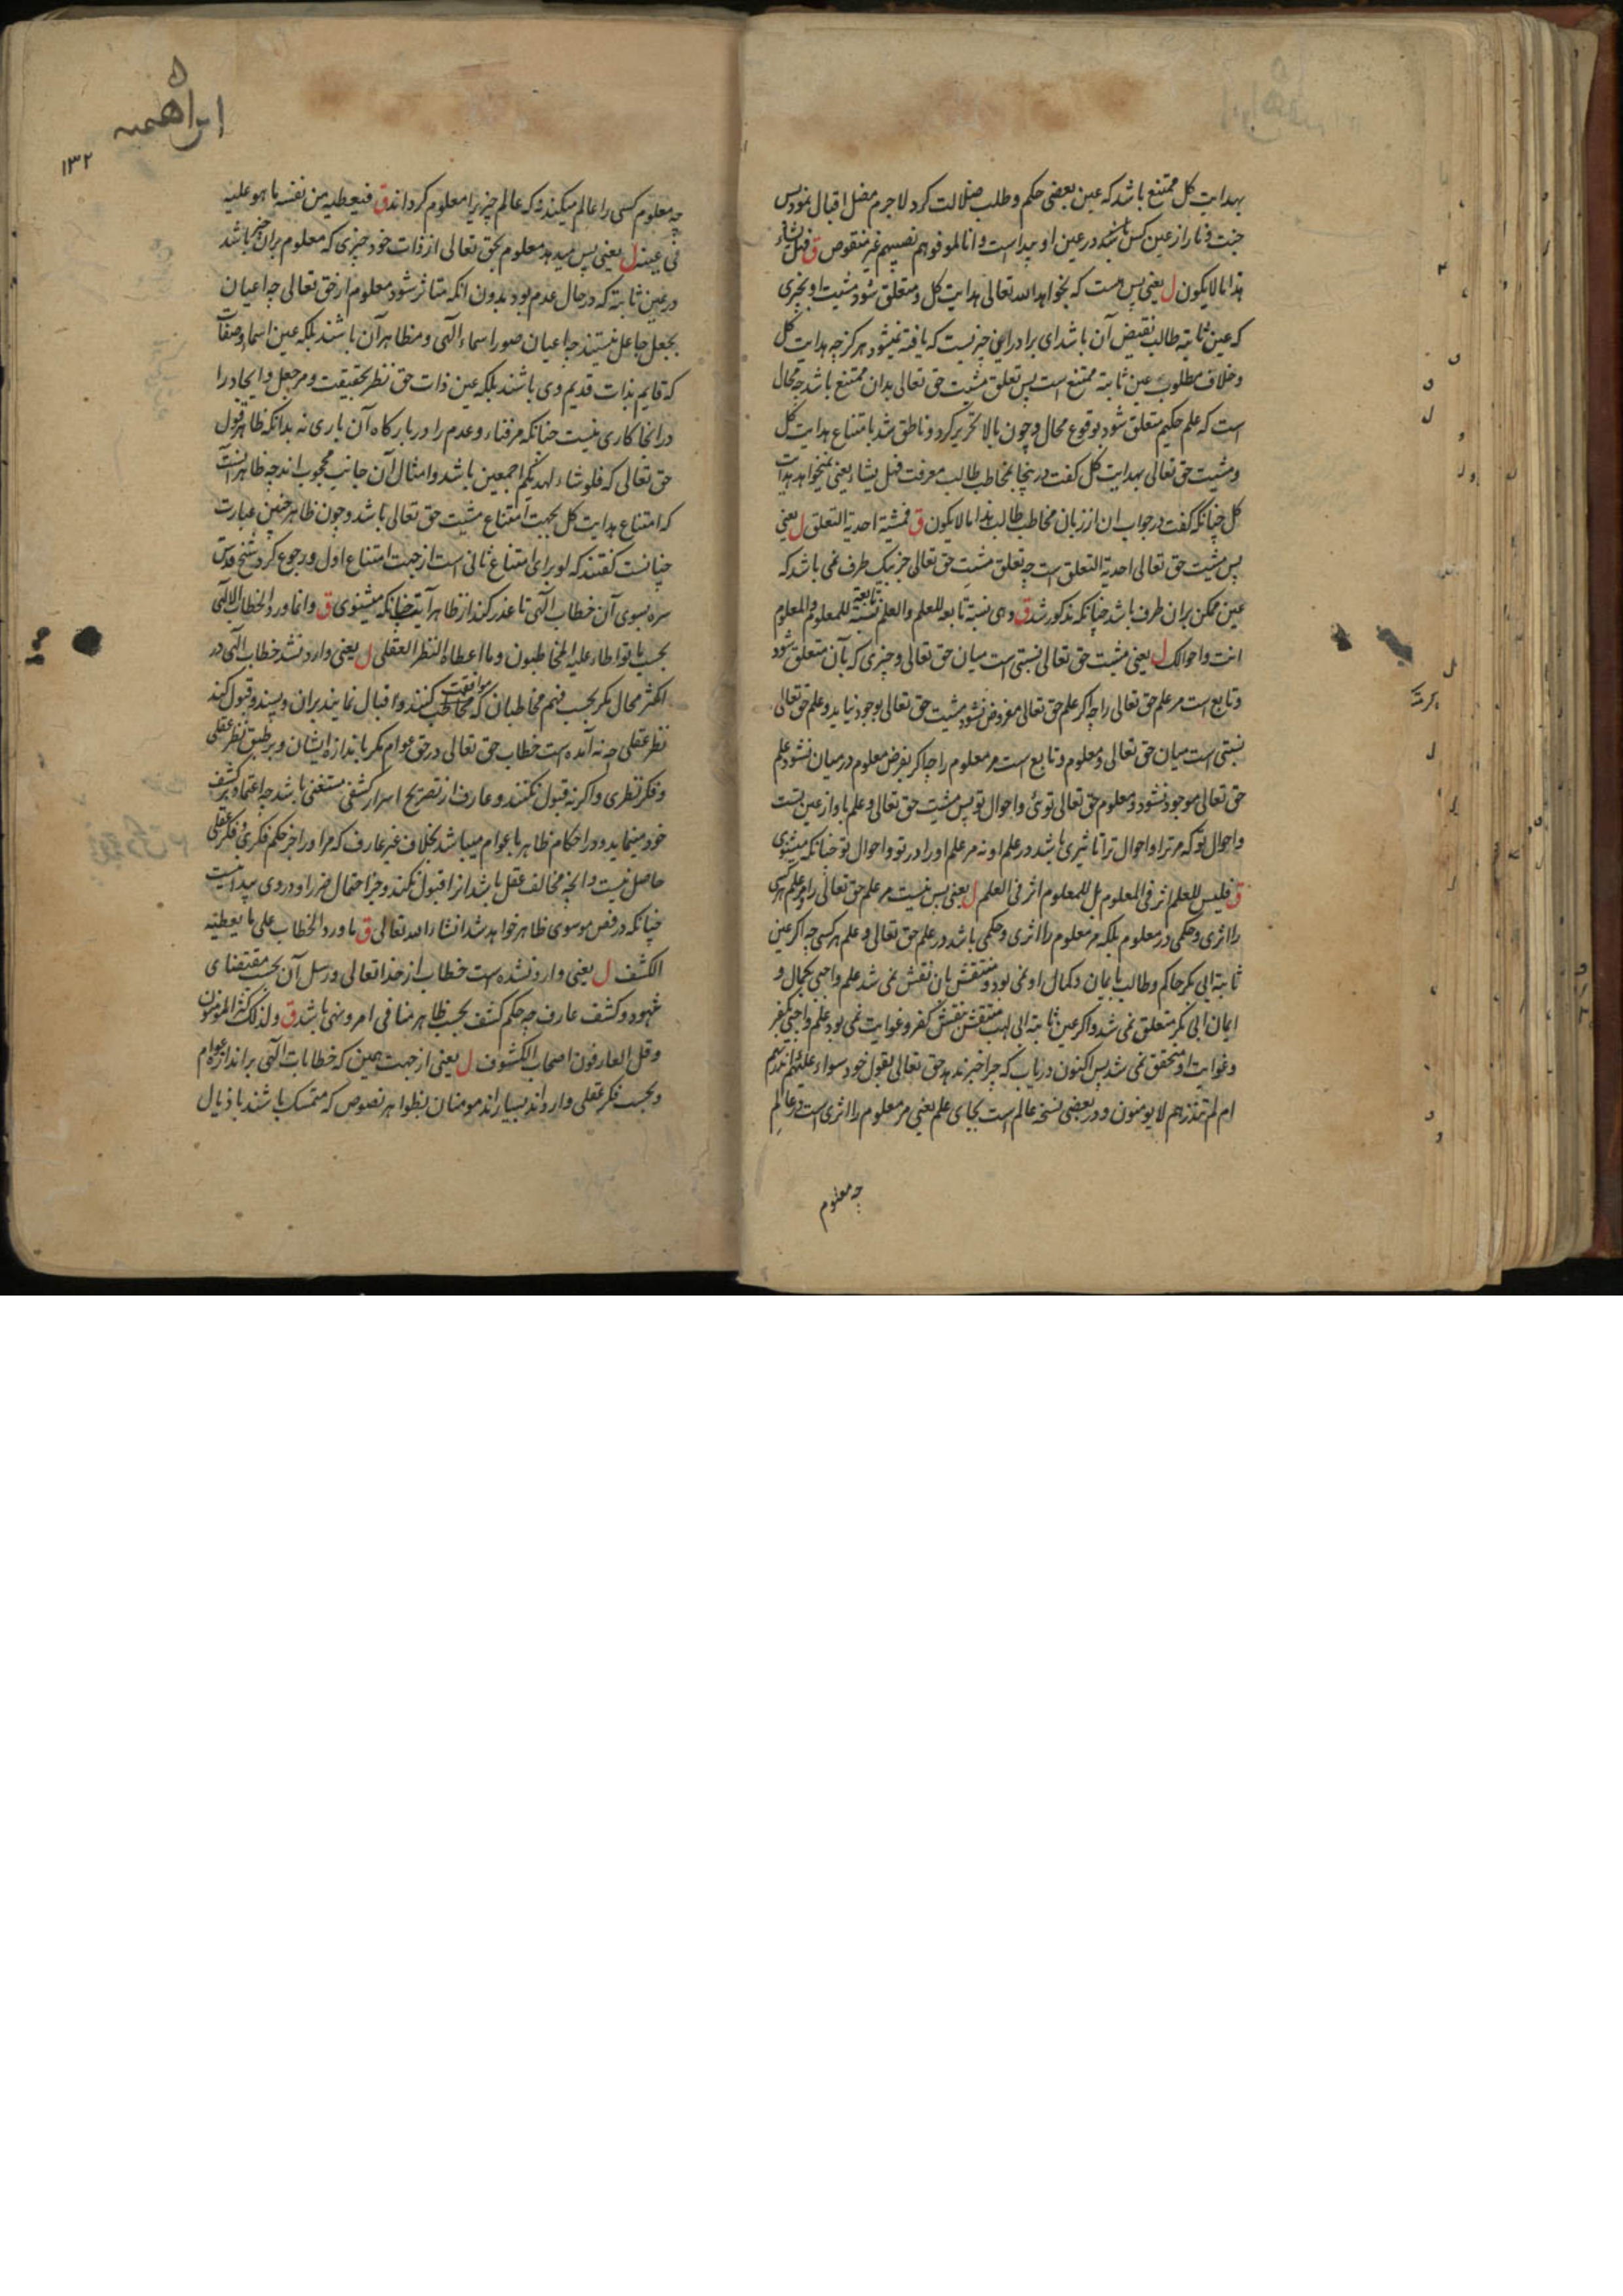 بهدایت کل ممتنع باشد که عین بعضی حکم و طلب ضلالت کرد لاجرم مضل اقبال نمود پس
جنت و نار از عین کس باشد در عین او پیداست و انا لموفوهم نصیبهم غیر منقوص ق فهل یشاء
هذا ما لا یکون ل یعنی پس هست که بخواهد الله تعالی هدایت کل و متعلق شود مشیت او بچیزی
که عین ثابته طالب نقیض آن باشد ای برادر این چیزیست که یافته نمیشود هرگز چه هدایت کل
و خلاف مطلوب عین ثابته ممتنع است پس تعلق مشیت حق تعالی بدان ممتنع باشد چه محال
است که علم حکیم متعلق شود بوقوع محال و چون بالا تحریر کرد و ناطق شد بامتناع هدایت کل
و مشیت حق تعالی بهدایت کل گفت درینجا بمخاطب طالب معرفت فهل یشاء یعنی نمیخواهد هدایت
کل چنانکه گفت در جواب ان از زبان مخاطب طالب هذا ما لا یکون ق فمشیة احدیة التعلق ل یعنی
پس مشیت حق تعالی احدیة التعلق است چه تعلق مشیت حق تعالی جز بیک طرف نمی باشد که
عین ممکن بران طرف باشد چنانکه مذکور شد ق و هی نسبة تابعه للعلم والعلم نسبة تابعة للمعلوم والمعلوم
انت و احوالک ل یعنی مشیت حق تعالی نسبتی است میان حق تعالی و چیزی که بآن متعلق شود
و تابع است مر علم حق تعالی را چه اگر علم حق تعالی مفروض نشود مشیت حق تعالی بوجود نیاید و علم حق تعالی
نسبتی است میان حق تعالی و معلوم و تابع است مر معلوم را چه اگر بفرض معلوم در میان نشود علم
حق تعالی موجود نشود و معلوم حق تعالی توئی و احوال تو پس مشیت حق تعالی و علم باو از عین تست
و احوال تو که مر ترا و احوال ترا تاثیری باشد در علم او نه مر علم او را در تو و احوال تو چنانکه میشنوی
ق فلیس للعلم اثر فی المعلوم بل للمعلوم اثر فی العلم ل یعنی پس نیست مر علم حق تعالی را و مر علم هر کسی
را اثری و حکمی در معلوم بلکه مر معلوم را اثری و حکمی باشد در علم حق تعالی و علم هر کسی چه اگر عین
ثابته ابی بکر حاکم و طالب بایمان و کمال او نمی بود و منتقش بان نقش نمی شد علم واجبی بکمال و
ایمان ابی بکر متعلق نمی شد و اگر عین ثابته ابی لهب منتقش بنقش کفر و غوایت نمی بود علم واجبی بکفر
و غوایت او متحقق نمی شد پس اکنون دریاب که چرا خبر ندهد حق تعالی بقول خود سواء علیهم أانذرتهم
ام لم تنذرهم لا یومنون و در بعضی نسخه عالم است بجای علم یعنی مر معلوم را اثری است در عالم
چه معلوم
ابراهیمیه
۱۳۲
چه معلوم کسی را عالم میکند نه که عالم چیزی را معلوم گرداند ق فیعطیه من نفسه ما هو علیه
فی عینه ل یعنی پس میدهد معلوم بحق تعالی از ذات خود چیزی که معلوم بران چیز باشد
در عین ثابته که در حال عدم بود بدون انکه متاثر شود معلوم از حق تعالی چه اعیان
بجعل جاعل نیستند چه اعیان صور اسماء الهی و مظاهر آن باشند بلکه عین اسماء و صفات
که قایم بذات قدیم وی باشند بلکه عین ذات حق نظر بحقیقت و مر جعل و ایجاد را
در انجا کاری نیست چنانکه مر فناء و عدم را در بارگاه آن باری نه بدانکه ظاهر قول
حق تعالی که فلو شاء لهدیکم اجمعین باشد و امثال آن جانب محجوب اند چه ظاهر آنست
که امتناع هدایت کل بجهت امتناع مشیت حق تعالی باشد و چون ظاهر چنین عبارت
چنانست گفتند که لو برای امتناع ثانی است از جهت امتناع اول و رجوع کرد شیخ قدس
سره بسوی آن خطاب الهی تا عذر کند از ظاهر آیت چنانکه میشنوی ق و انما ورد الخطاب الالهی
بحسب ما تواطاء علیه المخاطبون و ما اعطاه النظر العقلی ل یعنی وارد نشد خطاب الهی در
اکثر محال مگر بحسب فهم مخاطبان که موافقت مخاطب کنند و اقبال نمایند بران و پسند و قبول کند
نظر عقلی چه نه آمده است خطاب حق تعالی در حق عوام مگر باندازه ایشان و بر طبق نظر عقلی
و فکر نظری و اگرنه قبول نکنند و عارف از تصریح اسرار کشفی مستغنی باشد چه اعتماد بر کشف
خود مینماید و در احکام ظاهر با عوام میباشد بخلاف غیر عارف که مر او را جز حکم فکری و فکر عقلی
حاصل نیست و انچه مخالف عقل باشد انرا قبول نکند و جز احتمال ضرر او در وی پیدا نیست
چنانکه در فص موسوی ظاهر خواهد شد انشاء الله تعالی ق ما ورد الخطاب علی ما یعطیه
الکشف ل یعنی وارد نشده است خطاب از خدا تعالی و رسل آن بحسب مقتضای
شهود و کشف عارف چه حکم کشف بحسب ظاهر منافی امر و نهی باشد ق ولذلک کثر المومنون
و قل العارفون اصحاب الکشوف ل یعنی از جهت همین که خطابات الهی بر اندازه عوام
و بحسب فکر عقلی وارداند بسیار اند مومنان بظواهر نصوص که متمسک باشند باذیال